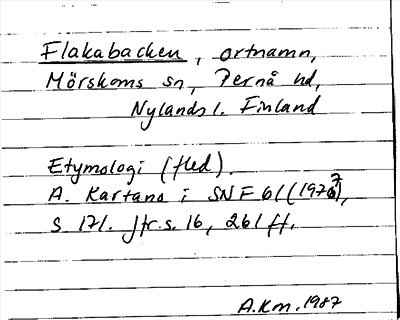 Flakabacken, ortnamn,
Mörskoms sn, Pernå hd,
Nylands l. Finland
Etymologi (fled).
A. Kartano i SNF 61 (1977),
s 171. Jfr. s. 16, 261 ff.
A.Km. 1987